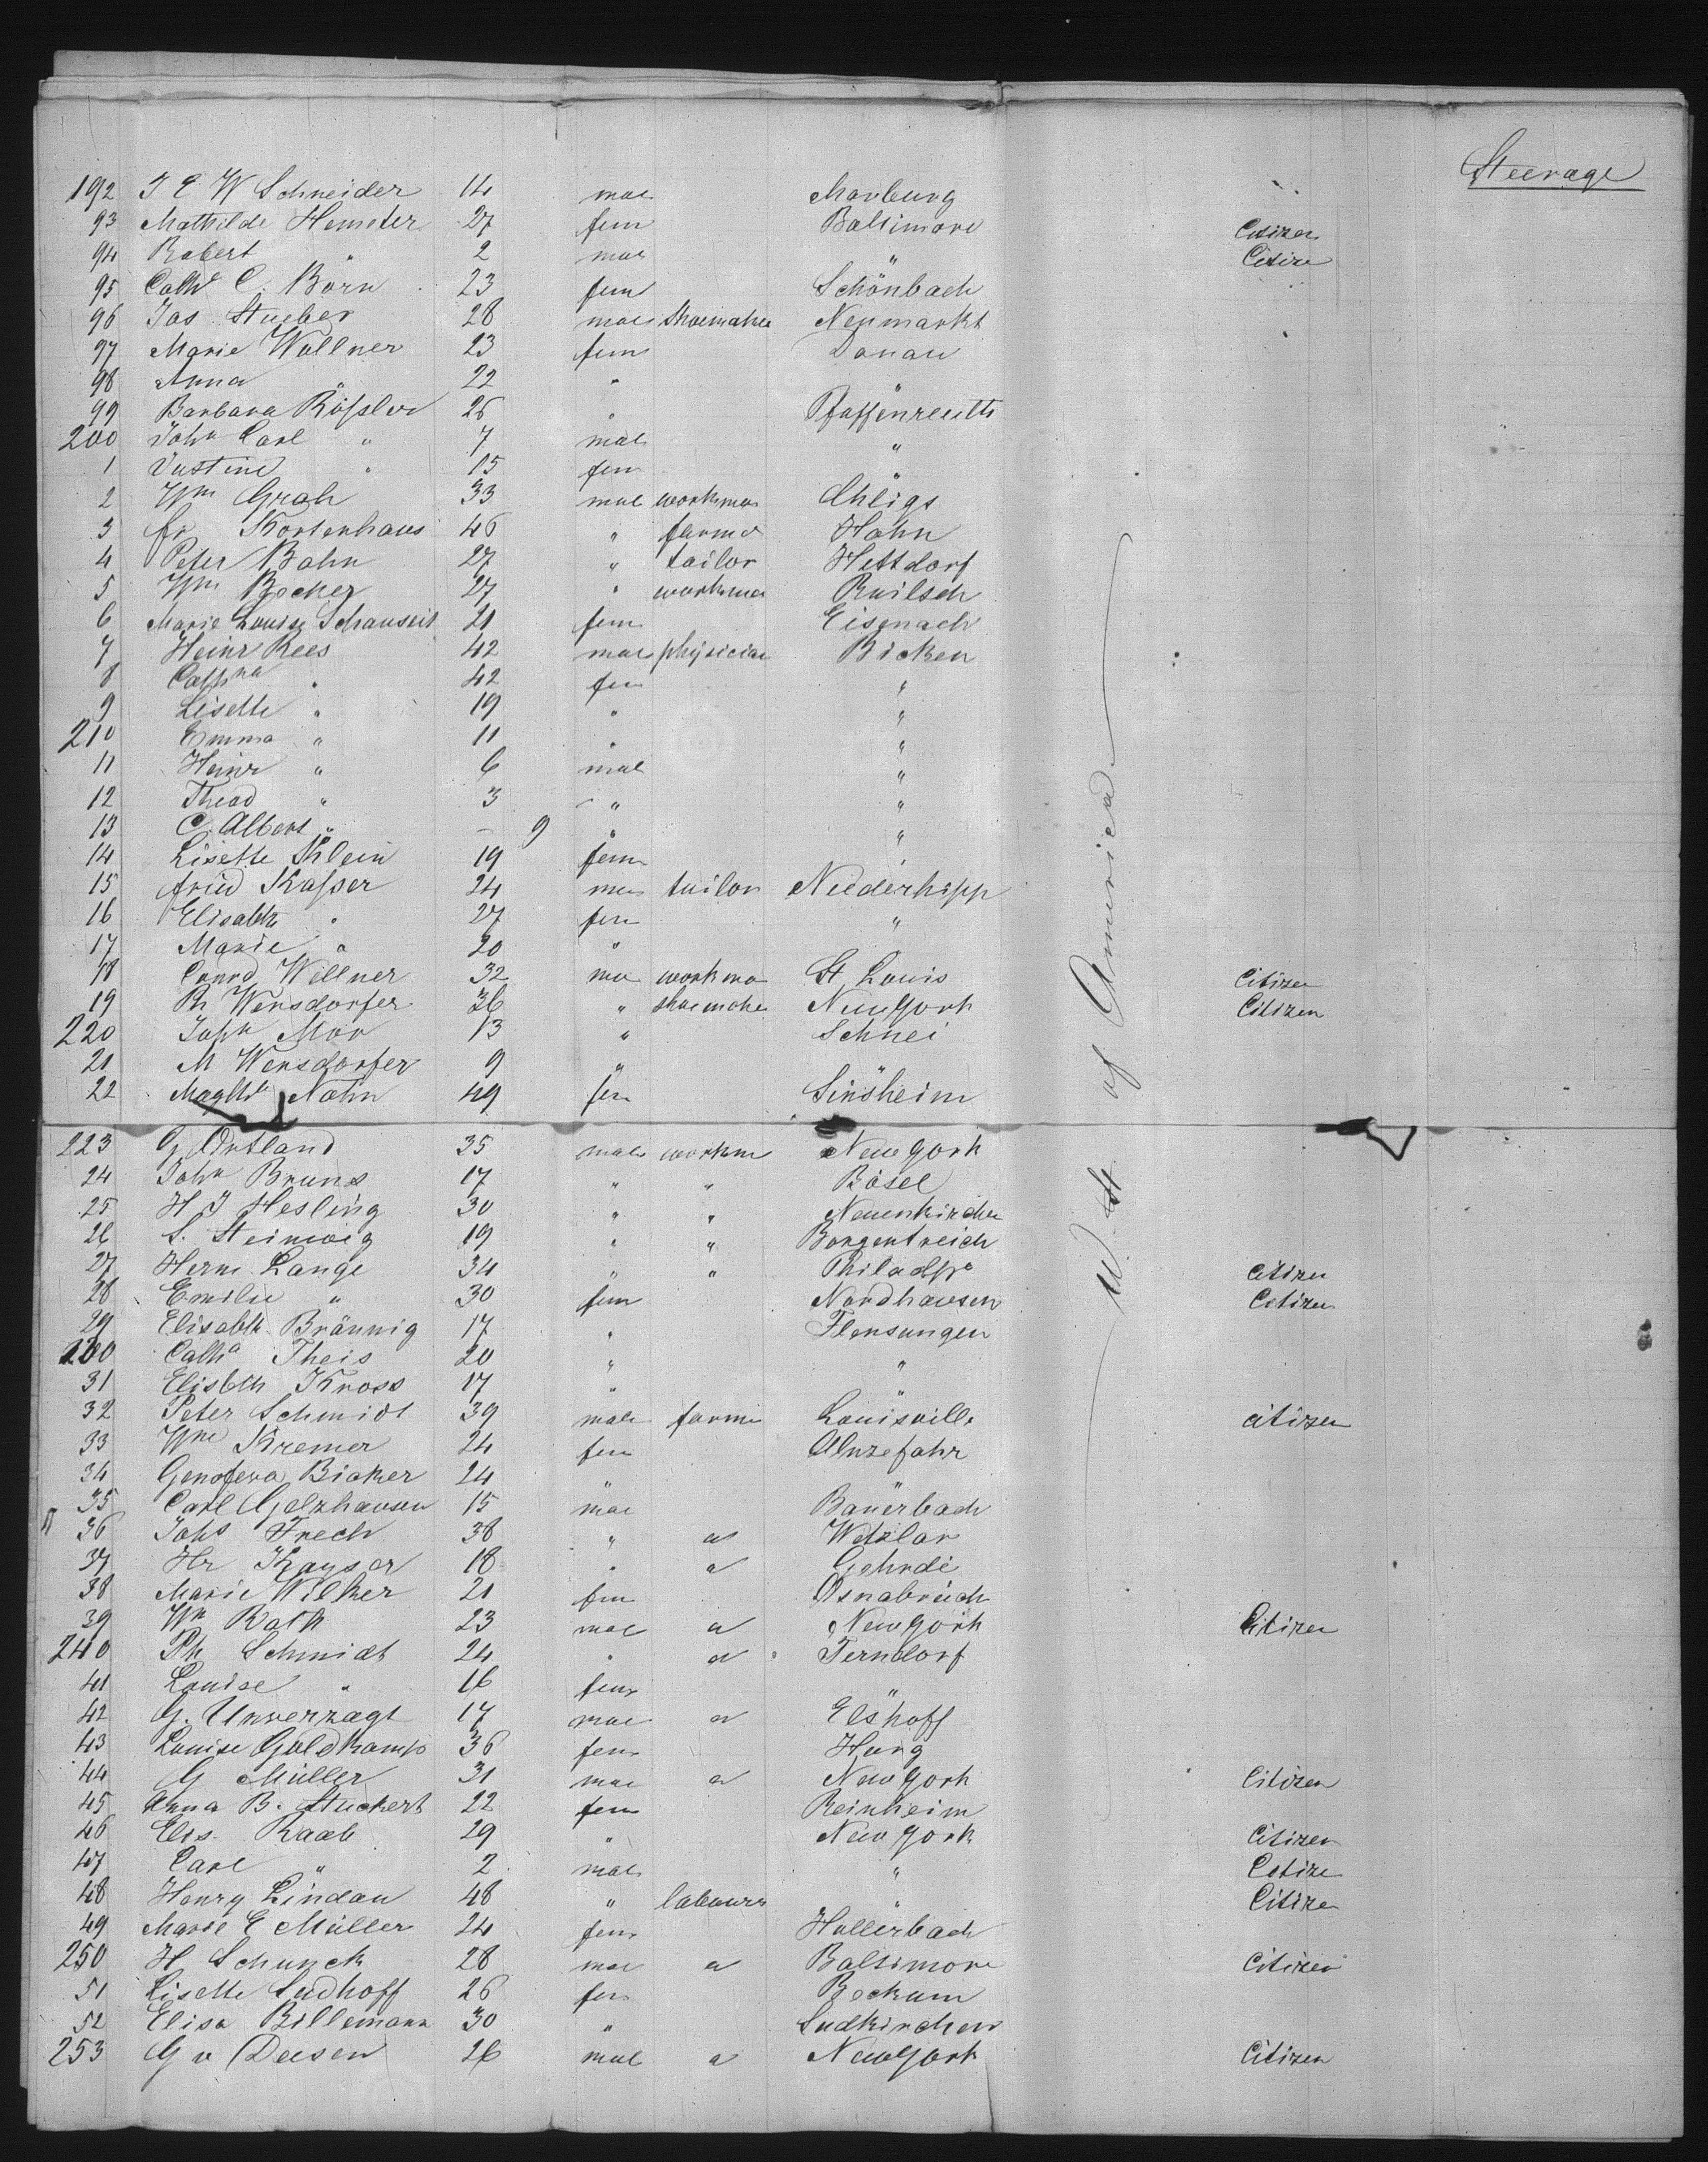 Steerage
192 J E W Schneider 14 mae Marburg
93 Mathilde Hemeter 27 fem Baltimore Citizen
94 Robert " 2 mae " Citize
95 Cathe C. Born 23 fem Schönbach
96 Jos. Stueber 28 mae Shoemake Neumarkt
97 Marie Wollner 23 fem Donau
98 Anna " 22 " "
99 Barbara Rößler 26 " Pfaffenreuth
200 John Carl " 7 mae "
1 Justine " 15 fem "
2 Wm Grah 33 mae workman Ohligs
3 fr Kortenhaus 46 " farmer Hahn
4 Peter Bahn 27 " tailor Hettdorf
5 Wm Becker 27 " workman
6 Marie Louise 21 fem Eisenach
7 Heinr Rees 42 mae physician Bicken
8 42 fem "
9 Lisette " 19 " "
210 Emma " 11 " "
11 Heinr " 6 mae "
12 Theod " 3 " "
13 C. Albert " – 9 " "
14 Lisette Klein 19 fem "
15 fried Kasper 24 mae tailor
16 Elisabth " 27 fem "
17 Marie " 20 "
18 Conrd Wellner 32 mae workma St. Louis Citizen
19 Ph Wensdorfer 36 " shoemake New York Citizen
220 John Mor 13 " Schnei
21 M Wensdorfer 9 " "
22 Nahn 49 fem Sinsheim
U. St. of America
223 G Ortland 35 male workm New York
24 John Bruns 17 " " Bösel
25 H J Hesling 30 " " Neuenkirchen
26 S. Steinweg 19 " " Borgentreich
27 Herm Lange 34 " " Philadpa Citizen
28 Emilie " 30 fem Nordhausen Citizen
29 Elisabth Bräunig 17 " Flensungen
230 Catha Theis 20 " "
31 Elisbth Kross 17 " "
32 Peter Schmidt 39 male farme Louisville citizen
33 Wne Kremer 24 fem
34 Genofeva Bicker 24 " "
35 Carl Gelzhausen 15 mae Bauerbach
36 Johs Frech 38 " a Wetzlar
37 Hr Kayser 18 " a Gehrde
38 Marie Wilker 21 fem Osnabrück
39 Wm Rath 23 mae a New York Citizen
240 Ph Schmidt 24 " a Ferndorf
41 Louise " 16 fem "
42 G. Unverzagt 17 mae a Elshoff
43 Louise Goldkamp 36 fem Harg
44 G Müller 31 mae a New York Citizen
45 Anna B. Stuckert 22 fem Reinheim
46 Elis. Raab 29 " New York Citizen
47 Carl " 2 mae " Citize
48 Henry Lindau 48 " labourr " Citize
49 Marie E Müller 24 fem Hollerbach
250 H Schunck 28 mae a Baltimore Citizen
51 Lisette Sudhoff 26 fem Beckum
52 Elisa Billemann 30 " Sudkirchen
253 G v Deesen 26 mae a New York Citizen